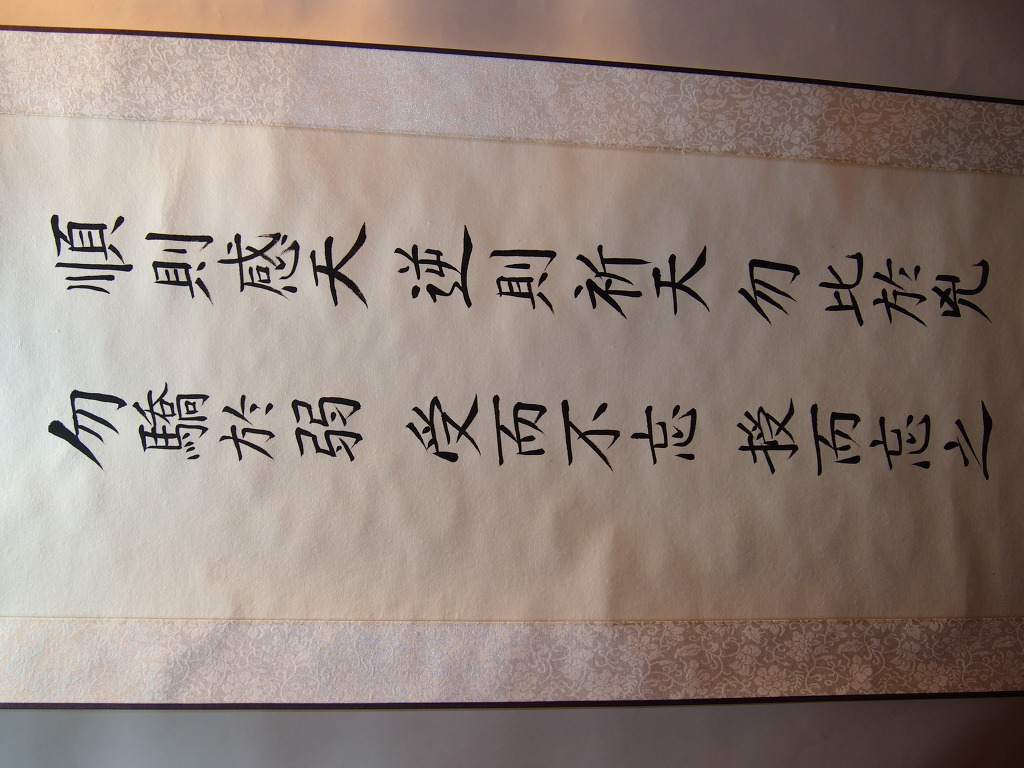 順則感天逆則祈天勿比於兇
勿驕於弱受而不忘授而忘之